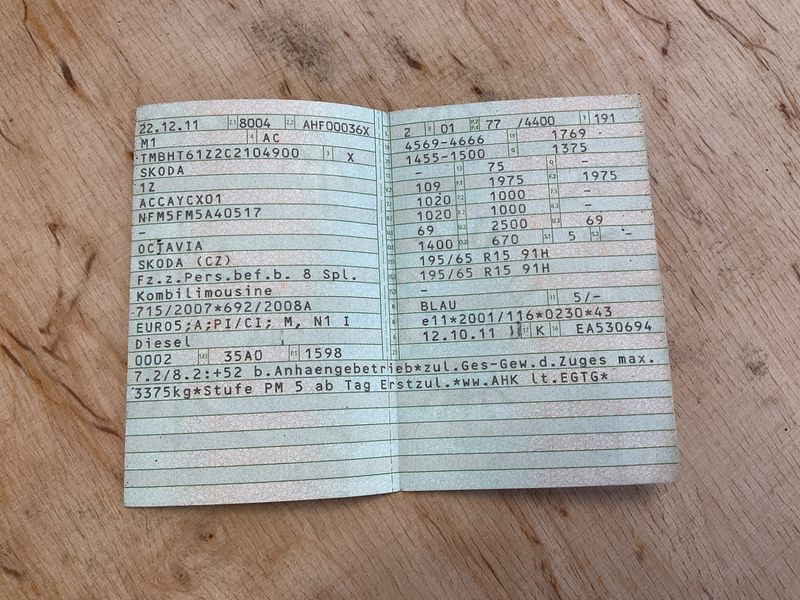 22.12.11 2.1 8004 2.2 AHF00036X
M1 4 AC
TMBHT61Z2C2104900 3 X
SKODA
1Z
ACCAYCX01
NFM5FM5A40517
-
OCTAVIA
SKODA (CZ)
Fz.z.Pers.bef.b. 8 Spl.
Kombilimousine
715/2007*692/2008A
EURO5;A;PI/CI; M, N1 I
Diesel
0002 35A0 P.1 1598
7.2/8.2:+52 b.Anhaengebetrieb*zul.Ges-Gew.d.Zuges max.
3375kg*Stufe PM 5 ab Tag Erstzul.*ww.AHK lt.EGTG*
2 9 01 P.2 P.4 77 /4400 T 191
4569-4666 18 1769
1455-1500 G 1375
- 13 75 Q -
109 F.1 1975 F.2 1975
1020 7.2 1000 7.3 -
1020 8.2 1000 8.3 -
69 U.2 2500 U.3 69
1400 O.2 670 S.1 5 S.2 -
195/65 R15 91H
195/65 R15 91H
-
BLAU 11 5/-
e11*2001/116*0230*43
12.10.11 17 K 16 EA530694